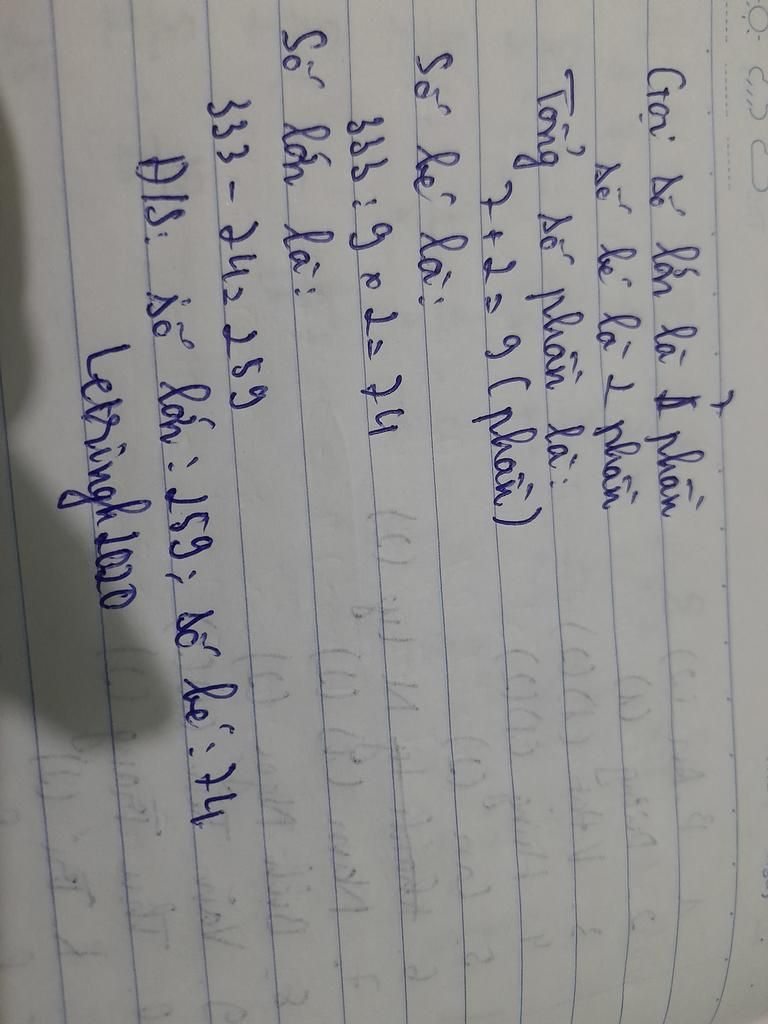 Gọi số lớn là 7 phần
số bé là 2 phần
Tổng số phần là:
7 + 2 = 9 (phần)
Số bé là:
333 : 9 x 2 = 74
Số lớn là:
333 - 74 = 259
Đ/S: số lớn: 259; số bé: 74